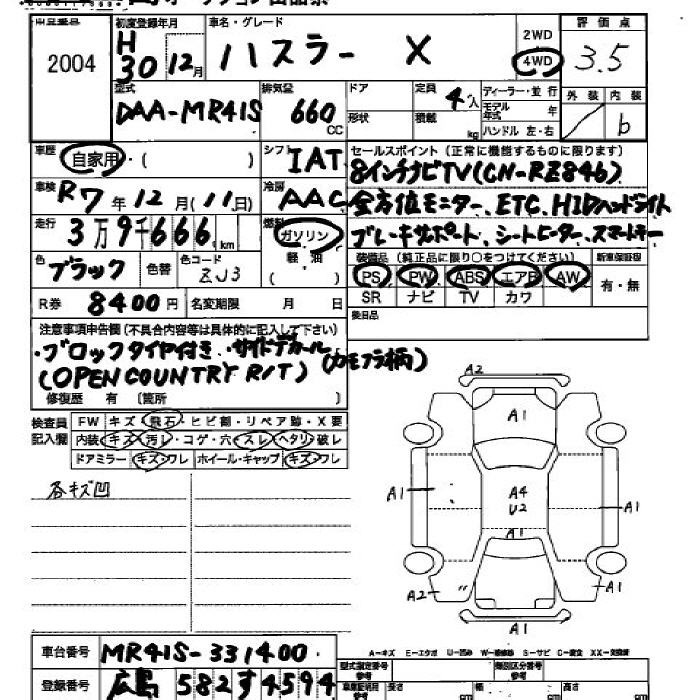 2004
初度登録年月 H30 12月
車名・グレード ハスラー X
2WD 4WD
評価点 3.5
外装 内装 b
型式 DAA-MR41S
排気量 660 CC
ドア 形状
定員 4人
積載 kg
ディーラー・並行
モデル年式 年
ハンドル 左・右
車歴 自家用・( )
シフト IAT
セールスポイント (正常に機能するものに限ります)
8インチナビTV(CN-RZ846)
車検 R7年12月(11日)
冷房 AAC
全方位モニター、ETC、HIDヘッドライト
走行 3万9千666km
燃料 ガソリン 軽油 ( )
ブレーキサポート、シートヒーター、スマートキー
色 ブラック 色替 色コード ZJ3
装備品 (純正品に限り○をつけてください) 新車保証書
PS PW ABS エアB AW 有・無
SR ナビ TV カワ
R券 8400円 名変期限 月 日
後日品
注意事項申告欄(不具合内容等は具体的に記入して下さい)
・ブロックタイヤ付き ・サイドデカール(カモフラ柄)
(OPEN COUNTRY R/T)
修復歴 有 〔箇所
検査員記入欄
FW キズ・飛石・ヒビ割・リペア跡・X要
内装 キズ・汚レ・コゲ・穴・スレ・ヘタリ・破レ
ドアミラー キズ・ワレ ホイール・キャップ キズ・ワレ
各キズ凹
A2
A1
A1
A4
U2
A1
A1
A2
A1
A1
A-キズ E-エクボ U-凹み W-補修跡 S-サビ C-腐食 XX-交換済
車台番号 MR41S-331400
型式指定番号 参考
類別区分番号 参考
登録番号 広島 582 す 4594
長さ cm 幅 cm 高さ cm